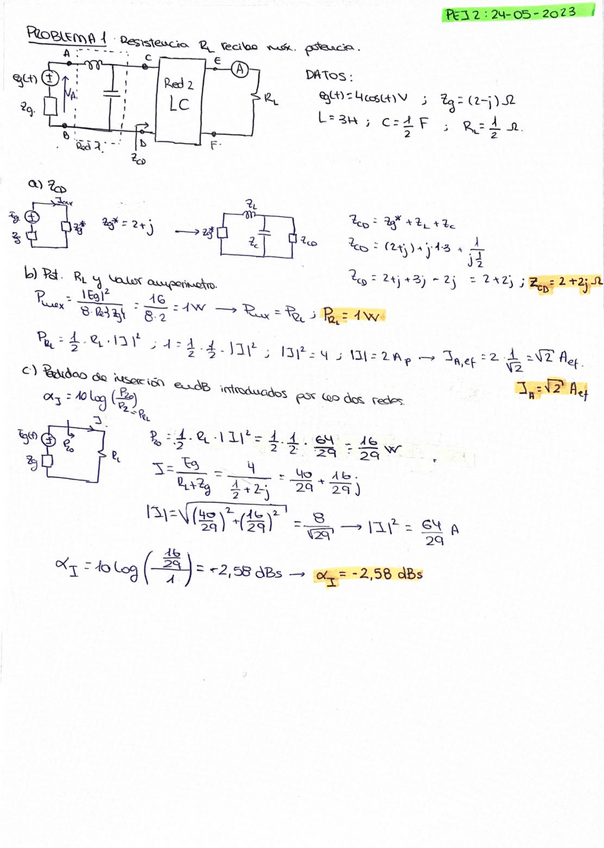 PEI 2: 24-05-2023
PROBLEMA 1 Resistencia RL recibe máx. potencia.
A C E A
eg(t) VA Red 2 LC RL
Zg
B Red 1 D F
ZCD
DATOS:
eg(t) = 4cos(t) V ; Zg = (2-j) Ω
L = 3H ; C = 1/2 F ; RL = 1/2 Ω.
a) ZCD
Eg Zg Zg* Zg* = 2+j → Zg* ZL ZC ZCD
ZCD = Zg* + ZL + ZC
ZCD = (2+j) + j·1·3 + 1/(j 1/2)
ZCD = 2+j + 3j - 2j = 2+2j ; ZCD = 2+2j Ω
b) Pot. RL y valor amperímetro.
Pmax = |Eg|²/(8·Re{Zg}) = 16/(8·2) = 1W → Pmax = PRL ; PRL = 1W
PRL = 1/2 · RL · |I|² ; 1 = 1/2 · 1/2 · |I|² ; |I|² = 4 ; |I| = 2 Ap → IA,ef = 2 · 1/√2 = √2 Aef.
IA = √2 Aef
c) Pérdidas de inserción en dB introducidos por los dos redes.
αI = 10 log (P20/P2 = PRL)
Eg(t) Zg P20 I RL
P20 = 1/2 · RL · |I|² = 1/2 · 1/2 · 64/29 = 16/29 W
I = Eg/(RL+Zg) = 4/(1/2 + 2-j) = 40/29 + 16/29 j
|I| = √((40/29)² + (16/29)²) = 8/√29 → |I|² = 64/29 A
αI = 10 log ((16/29)/1) = -2,58 dBs → αI = -2,58 dBs